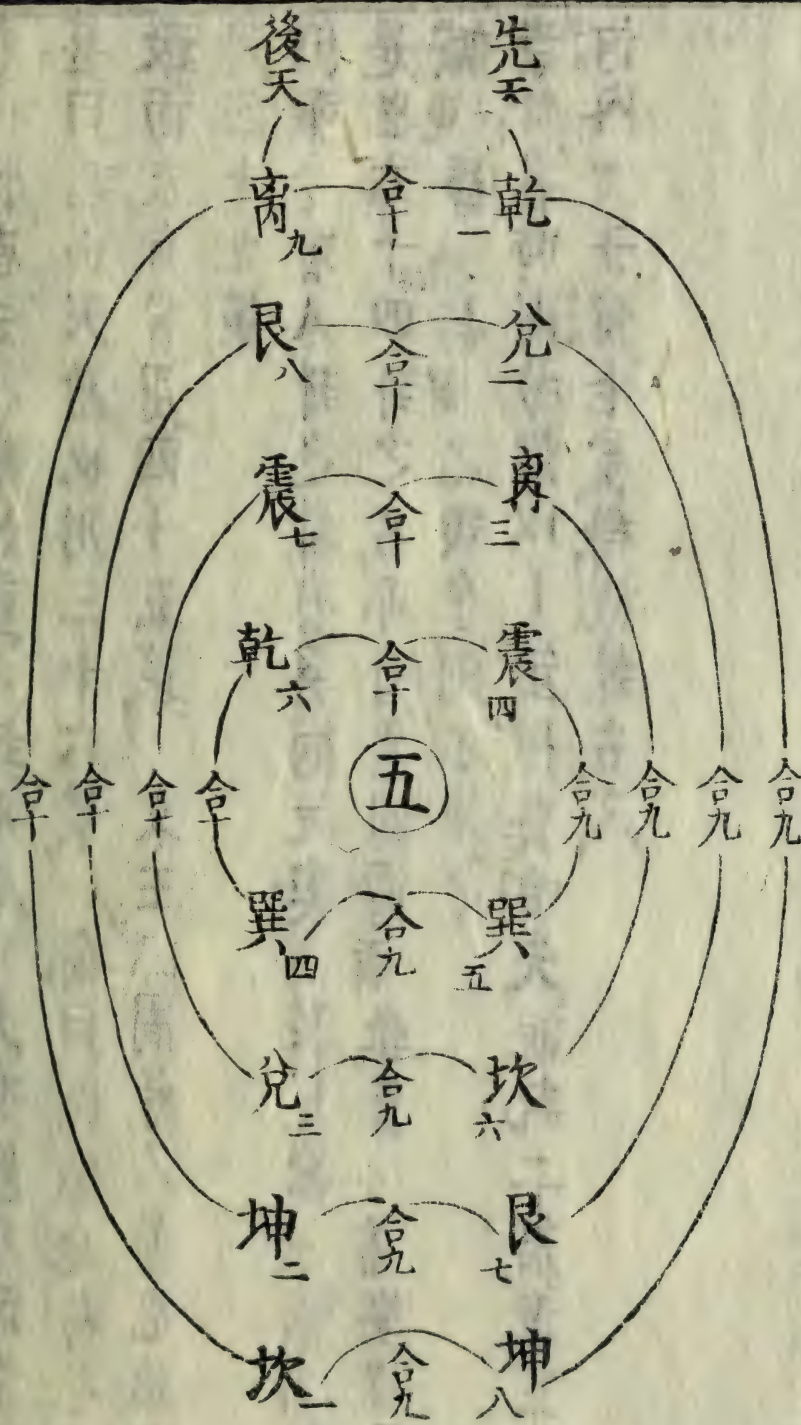 先天
後天
乾一
合十
离九
兌二
合十
艮八
离三
合十
震七
震四
合十
乾六
合九
合九
合九
合九
五
合十
合十
合十
合十
巽五
合九
巽四
坎六
合九
兌三
艮七
合九
坤二
坤八
合九
坎一